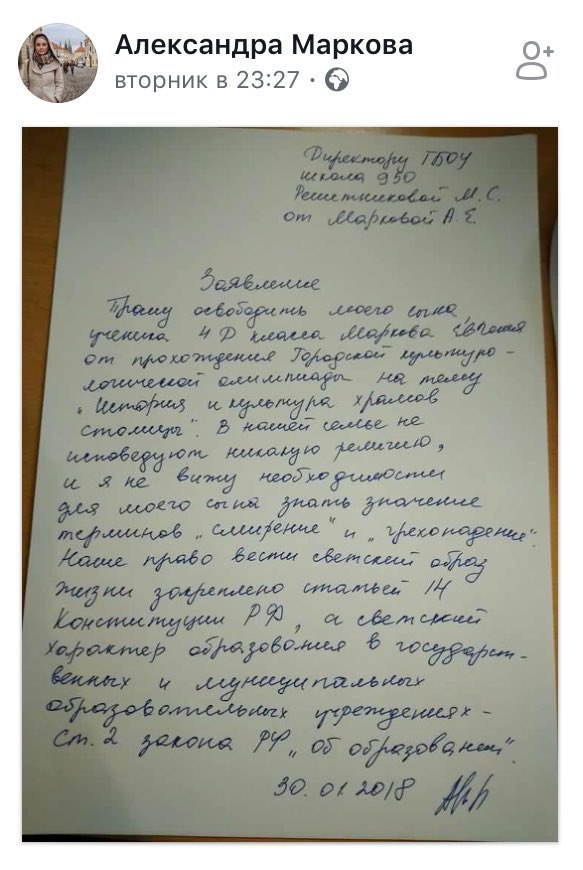 Александра Маркова
вторник в 23:27 ·
Директору ГБОУ
школа 950
Решетниковой М. С.
от Марковой А. Е.
Заявление
Прошу освободить моего сына,
ученика 4 Д класса Маркова
от прохождения Городской культуро-
логической олимпиады на тему
"История и культура храмов
столицы". В нашей семье не
исповедуют никакую религию,
и я не вижу необходимости
для моего сына знать значение
терминов "смирение" и "грехопадение".
Наше право вести светский образ
жизни закреплено статьёй 14
Конституции РФ, а светский
характер образования в государст-
венных и муниципальных
образовательных учреждениях -
ст. 2 закона РФ "об образовании".
30.01.2018